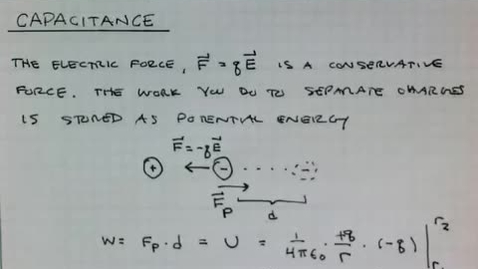 CAPACITANCE
THE ELECTRIC FORCE, F⃗ = qE⃗ IS A CONSERVATIVE
FORCE. THE WORK YOU DO TO SEPARATE CHARGES
IS STORED AS POTENTIAL ENERGY
F⃗ = -qE⃗
+ - -
F⃗p d
W = Fp · d = U = 1/4πε₀ · +q/r · (-q) | r₂
r